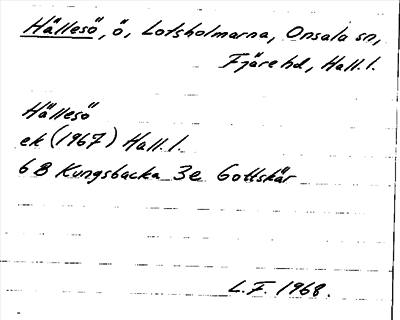 Hällesö, ö, Lotsholmarna, Onsala sn,
Fjäre hd, Hall. l.
Hällesö
ek (1967) Hall. l.
6 B Kungsbacka 3e Gottskär
L.F. 1968.